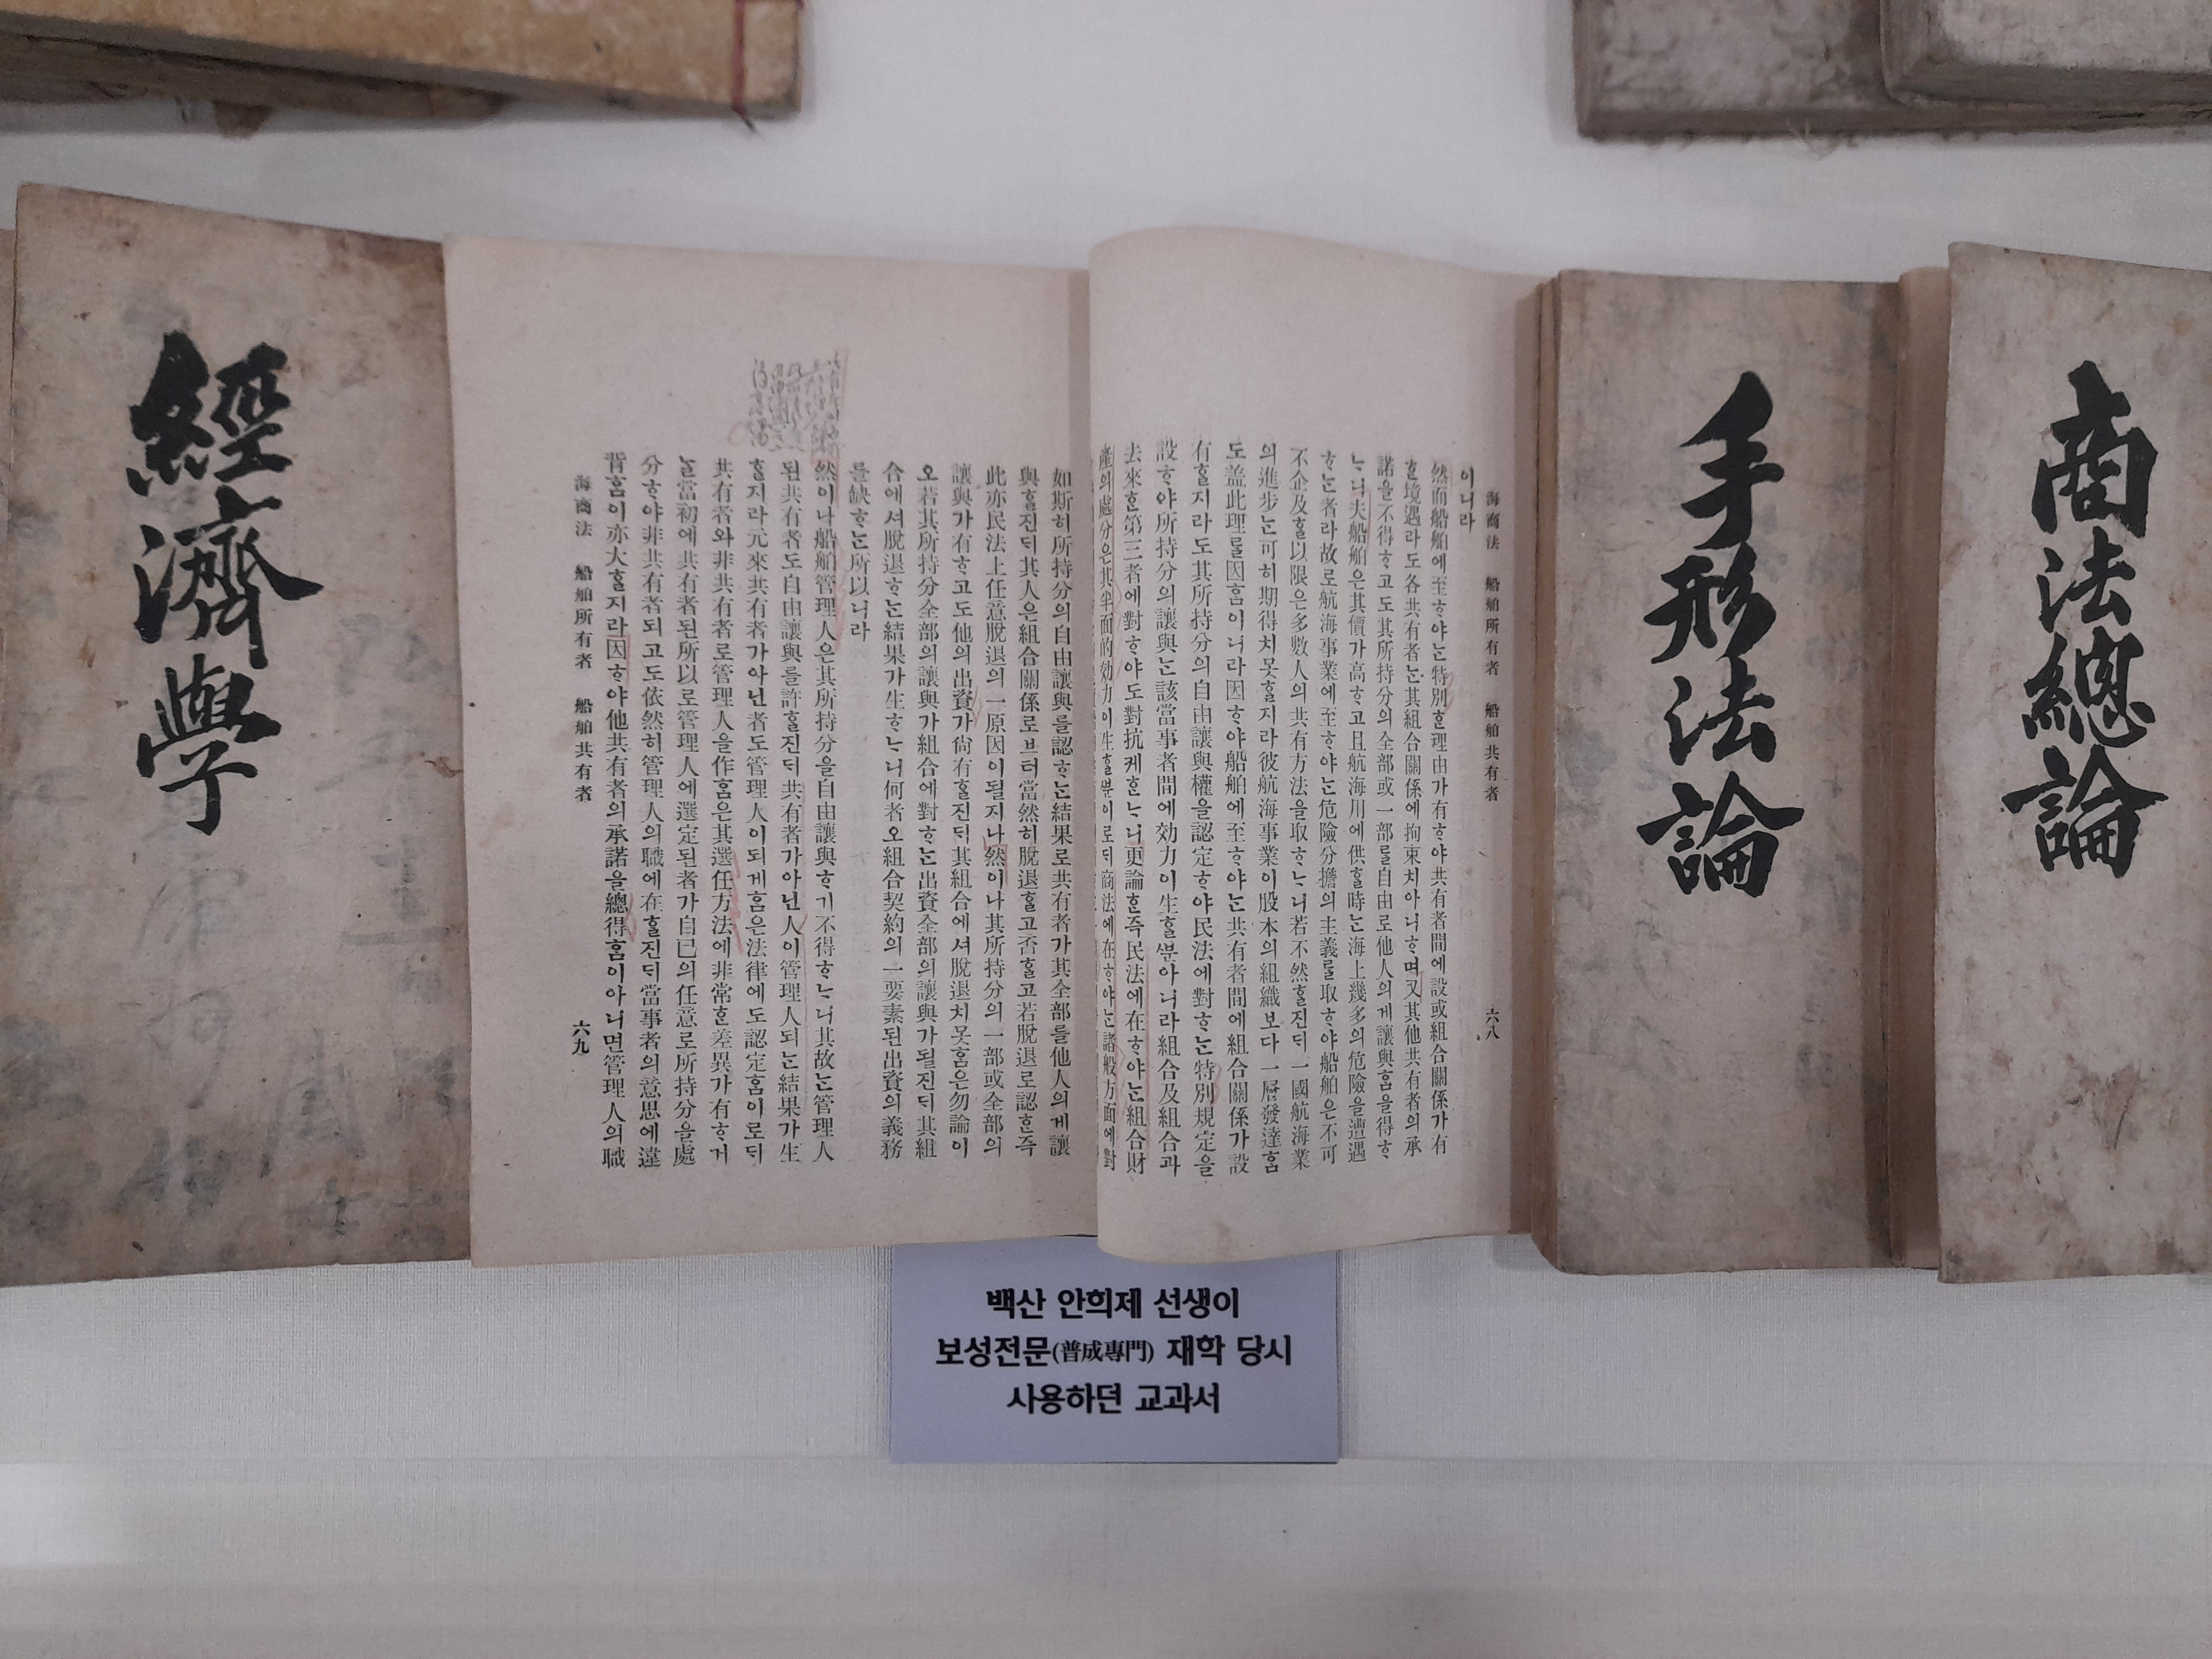 商法總論
手形法論
海商法 船舶所有者 船舶共有者 六八
이니라
然而船舶에至ᄒᆞ야ᄂᆞᆫ特別ᄒᆞᆫ理由가有ᄒᆞ야共有者間에設或組合關係가有
ᄒᆞᆯ境遇라도各共有者ᄂᆞᆫ其組合關係에拘束치아니ᄒᆞ며又其他共有者의承
諾을不得ᄒᆞ고도其所持分의全部或一部를自由로他人의게讓與ᄒᆞᆷ을得ᄒᆞ
ᄂᆞ니夫船舶은其價가高ᄒᆞ고且航海用에供ᄒᆞᆯ時ᄂᆞᆫ海上幾多의危險을遭遇
ᄒᆞᄂᆞᆫ者라故로航海事業에至ᄒᆞ야ᄂᆞᆫ危險分擔의主義를取ᄒᆞ야船舶은不可
不企及ᄒᆞᆯ以限은多數人의共有方法을取ᄒᆞᄂᆞ니若不然ᄒᆞᆯ진ᄃᆡ一國航海業
의進步ᄂᆞᆫ可히期得치못ᄒᆞᆯ지라彼航海事業이股本의組織보다一層發達ᄒᆞᆷ
도盖此理를因ᄒᆞᆷ이니라因ᄒᆞ야船舶에至ᄒᆞ야ᄂᆞᆫ共有者間에組合關係가設
有ᄒᆞᆯ지라도其所持分의自由讓與權을認定ᄒᆞ야民法에對ᄒᆞᄂᆞᆫ特別規定을
設ᄒᆞ야所持分의讓與ᄂᆞᆫ該當事者間에効力이生ᄒᆞᆯᄲᅮᆫ아니라組合及組合과
去來ᄒᆞᆫ第三者에對ᄒᆞ야도對抗케ᄒᆞᄂᆞ니更論ᄒᆞᆫ즉民法에在ᄒᆞ야ᄂᆞᆫ組合財
産의處分은其半面的効力이生ᄒᆞᆯᄲᅮᆫ이로ᄃᆡ商法에在ᄒᆞ야ᄂᆞᆫ諸般方面에對
如斯히所持分의自由讓與를認ᄒᆞᄂᆞᆫ結果로共有者가其全部를他人의게讓
與ᄒᆞᆯ진ᄃᆡ其人은組合關係로브터當然히脫退ᄒᆞᆯ고否ᄒᆞᆯ고若脫退로認ᄒᆞᆫ즉
此亦民法上任意脫退의一原因이될지나然이나其所持分의一部或全部의
讓與가有ᄒᆞ고도他의出資가尙有ᄒᆞᆯ진ᄃᆡ其組合에셔脫退치못ᄒᆞᆷ은勿論이
오若其所持分全部의讓與가組合에對ᄒᆞᄂᆞᆫ出資全部의讓與가될진ᄃᆡ其組
合에셔脫退ᄒᆞᄂᆞᆫ結果가生ᄒᆞᄂᆞ니何者오組合契約의一要素된出資의義務
를缺ᄒᆞᄂᆞᆫ所以니라
然이나船舶管理人은其所持分을自由讓與ᄒᆞ기不得ᄒᆞᄂᆞ니其故ᄂᆞᆫ管理人
된共有者도自由讓與를許ᄒᆞᆯ진ᄃᆡ共有者가아닌人이管理人되ᄂᆞᆫ結果가生
ᄒᆞᆯ지라元來共有者가아닌者도管理人이되게ᄒᆞᆷ은法律에도認定ᄒᆞᆷ이로ᄃᆡ
共有者와非共有者로管理人을作ᄒᆞᆷ은其選任方法에非常ᄒᆞᆫ差異가有ᄒᆞ거
ᄂᆞᆯ當初에共有者된所以로管理人에選定된者가自己의任意로所持分을處
分ᄒᆞ야非共有者되고도依然히管理人의職에在ᄒᆞᆯ진ᄃᆡ當事者의意思에違
背ᄒᆞᆷ이亦大ᄒᆞᆯ지라因ᄒᆞ야他共有者의承諾을總得ᄒᆞᆷ이아니면管理人의職
海商法 船舶所有者 船舶共有者 六九
經濟學
백산 안희제 선생이
보성전문(普成專門) 재학 당시
사용하던 교과서